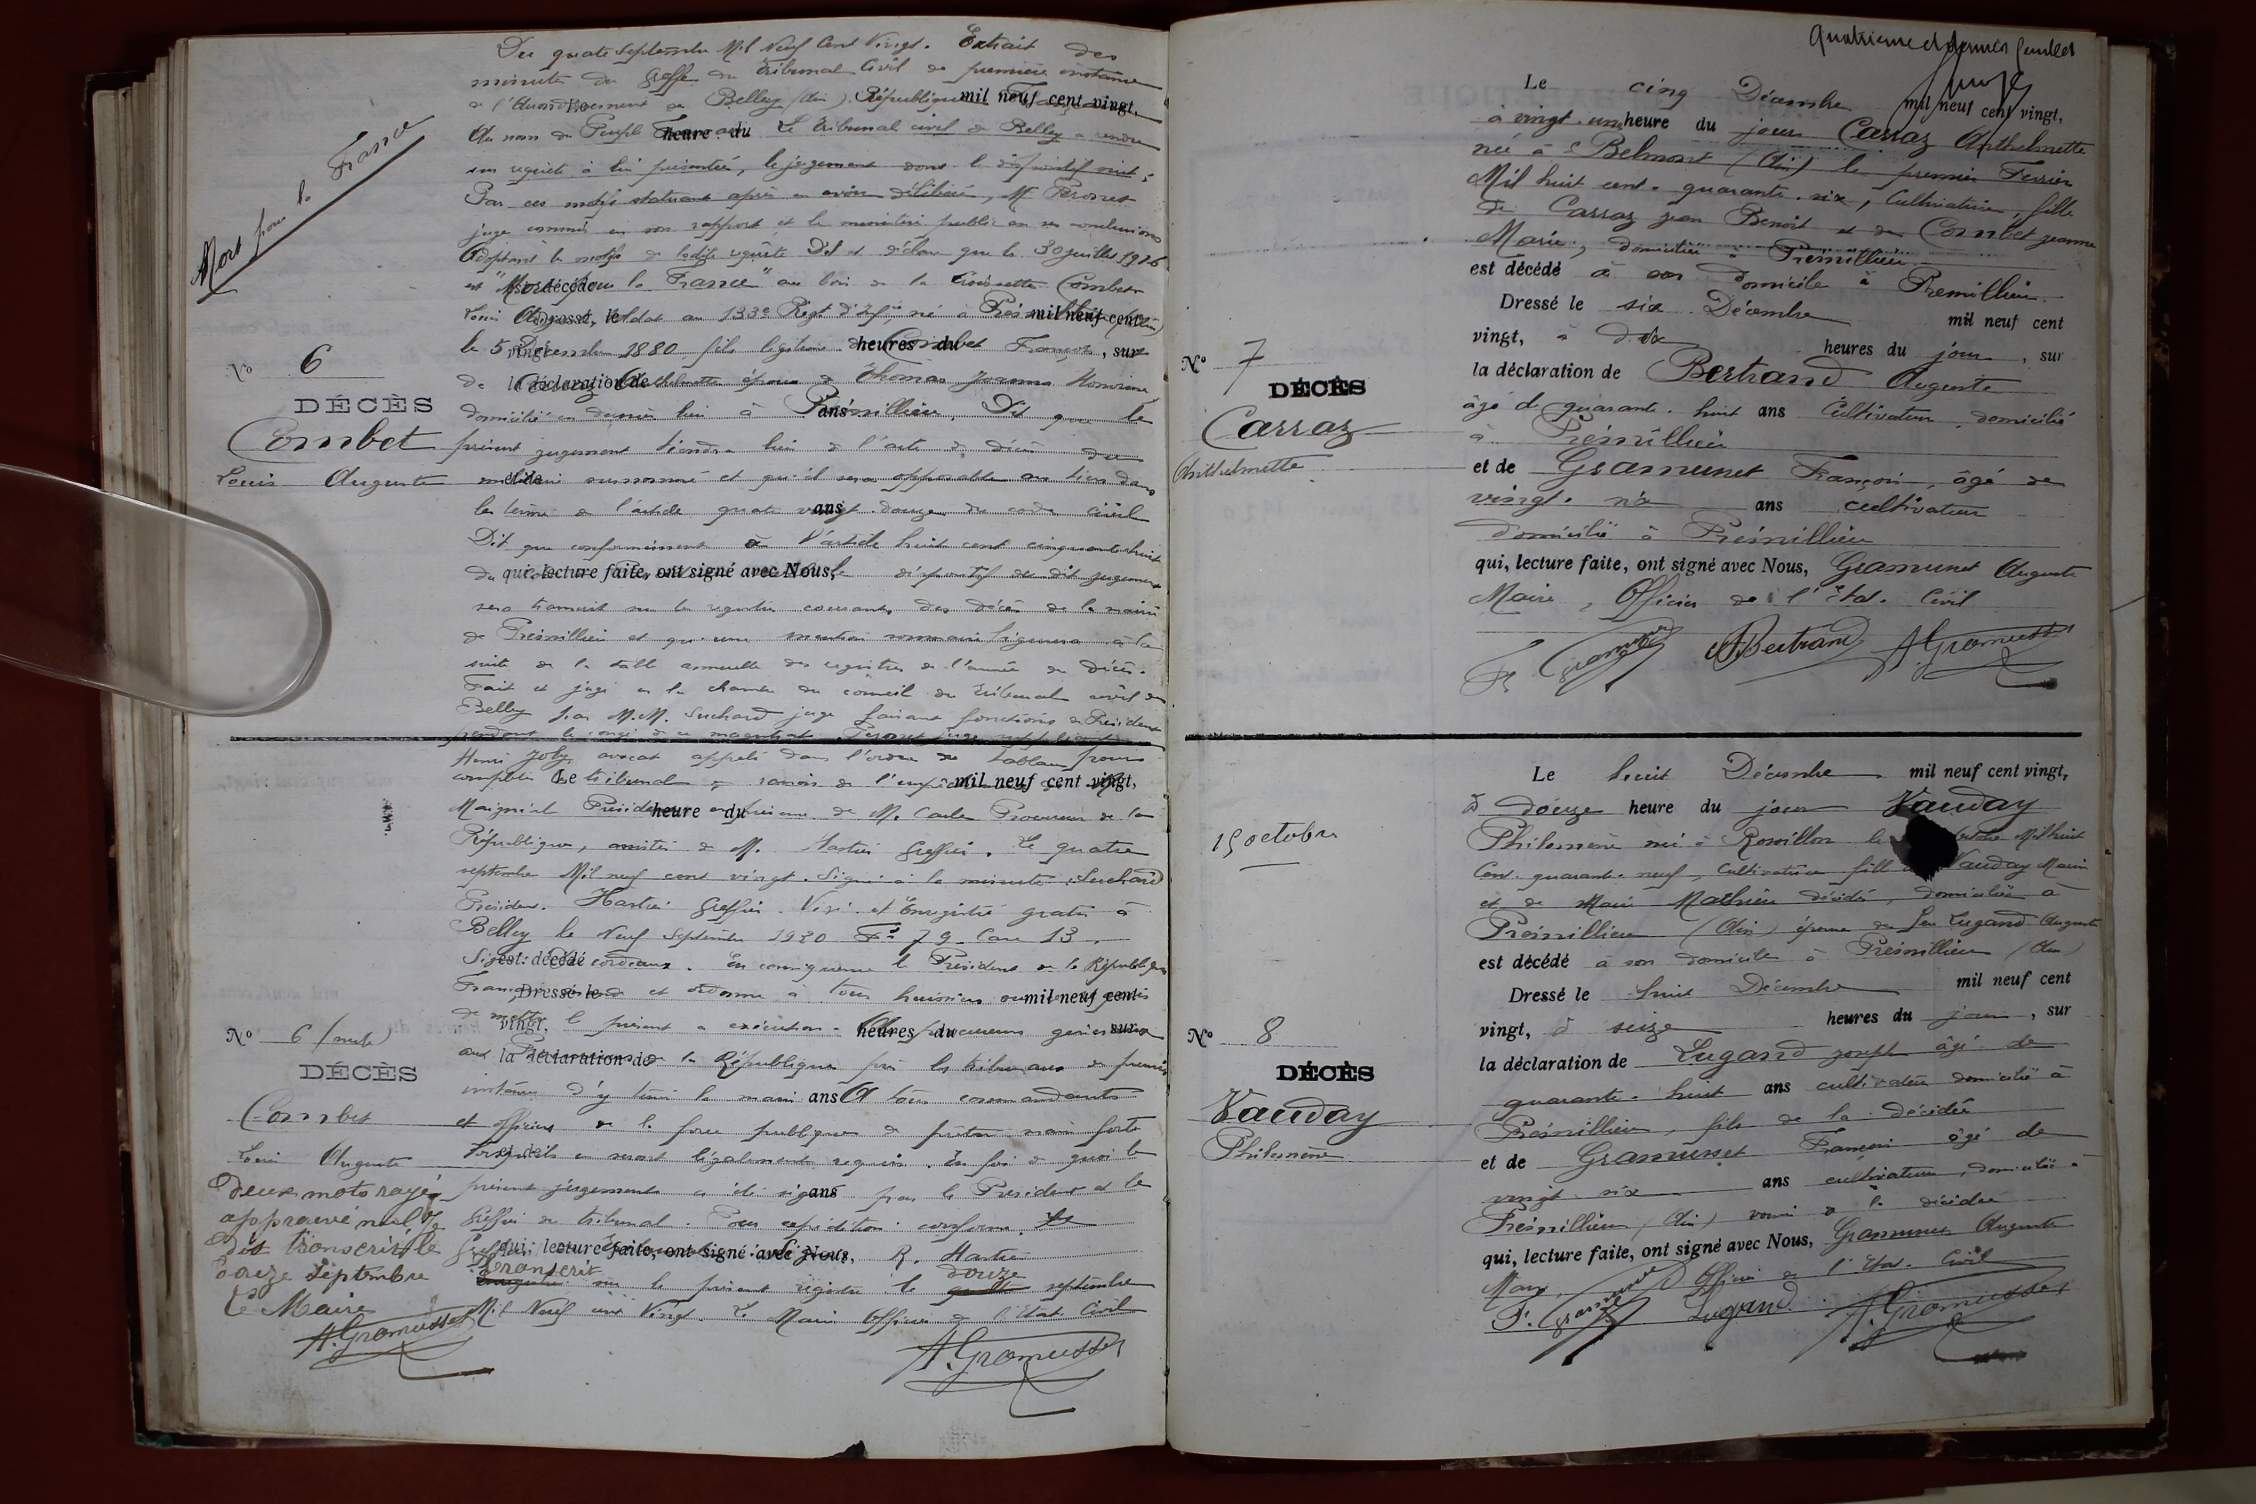 Du quatre Septembre Mil Neuf Cent Vingt. Extrait des
minutes du Greffe du Tribunal Civil de première instance
de l'arrondissement de Belley (Ain). République Française
mil neuf cent vingt,
Au nom du Peuple Français Le Tribunal civil de Belley a rendu
heure du
sur requête à lui présentée, le jugement dont le dispositif suit:
Par ces motifs statuant après en avoir délibéré, M Peronet
juge commis en son rapport et le ministère public en ses conclusions
Adoptant les motifs de ladite requête Dit et déclare que le 30 juillet 1916
est "Mort pour la France" au bois de la Croisette Combet
est décédé
Louis Auguste, soldat au 133e Régt d'Infie, né à Prémillieu (Ain)
Dressé le mil neuf cent
le 5 Décembre 1880 fils légitime de Combet François, et
vingt, heures du , sur
de Carraz Anthelmette époux de Thomas Joanna Honorine,
la déclaration de
domicilié en dernier lieu à Prémillieu. Dit que le
ans
présent jugement tiendra lieu de l'acte de décès du
militaire susnommé et qu'il sera opposable aux tiers dans
et de
les termes de l'article quatre vingt douze du code civil
ans
Dit que conformément à l'article huit cent cinquante huit
du dispositif du dit jugement
qui, lecture faite, ont signé avec Nous,
sera transcrit sur les registres courants des décès de la mairie
de Prémillieu et qu'une mention sommaire figurera à la
suite de la table annuelle des registres de l'année du décès.
Fait et jugé en la chambre du conseil du Tribunal civil de
Belley par M.M. Suchard juge faisant fonctions de Président
pendant le congé de ce magistrat, Peronet juge
Henri Joly avocat appelé dans l'ordre du tableau pour
compléter le tribunal
Le mil neuf cent vingt,
Président en présence de M. Procureur de la
heure du
République, assisté de M. Hartri Greffier. Le quatre
septembre Mil neuf cent vingt. Signé à la minute Suchard
Président. Hartri Greffier. Visé et Enregistré gratis à
Belley le Neuf Septembre 1920 Fº 79 Case 13.
Signé: En conséquence le Président de la République
est décédé
Française et ordonne à tous huissiers
Dressé le mil neuf cent
de mettre le présent a exécution. Aux procureurs généraux
vingt, heures du sur
aux Procureurs de la République près les tribunaux de première
la déclaration de
instance d'y tenir la main A tous commandants
ans
et officiers de la force publique de prêter main forte
lorsqu'ils en seront légalement requis. En foi de quoi le
et de
présent jugement a été signé par le Président et le
ans
Greffier du tribunal. Pour expédition conforme. Le
Greffier R. Hartri
qui, lecture faite, ont signé avec Nous,
Transcrit sur le présent registre le douze septembre
Mil Neuf cent Vingt. Le Maire Officier de l'Etat Civil
A. Gramusset
Mort pour la France
No 6
DÉCÈS
Combet
Louis Auguste
No 6 (suite)
DÉCÈS
Combet
Louis Auguste
deux mots rayés
approuvé nul
dit transcrit le
douze septembre
Le Maire
A. Gramusset
Quatrième et dernier feuillet
Le cinq Décembre mil neuf cent vingt,
à vingt-une heure du jour Carraz Anthelmette
née à Belmont (Ain) le premier Février
Mil huit cent quarante-six, Cultivatrice, fille
de Carraz jean Benoit et de Combet jeanne
Marie, domiciliée à Prémillieu
est décédé à son domicile à Prémillieu
Dressé le six Décembre mil neuf cent
vingt, à dix heures du jour, sur
la déclaration de Bertrand Auguste
âgé de quarante-huit ans Cultivateur, domicilié
à Prémillieu
et de Gramusset François, âgé de
vingt-six ans cultivateur
domicilié à Prémillieu
qui, lecture faite, ont signé avec Nous, Gramusset Auguste
Maire, Officier de l'Etat Civil
F. Gramusset A Bertrand A. Gramusset
No 7
DÉCÈS
Carraz
Anthelmette
Le huit Décembre mil neuf cent vingt,
à douze heure du jour Vauday
Philomène née à Rossillon le Mil huit
Cent quarante-neuf, Cultivatrice fille de Vauday Marin
et de Marie Mathieu décédés, domiciliée à
Prémillieu (Ain) épouse de feu Lugand Auguste
est décédé à son domicile à Prémillieu (Ain)
Dressé le huit Décembre mil neuf cent
vingt, à seize heures du jour, sur
la déclaration de Lugand joseph âgé de
quarante-huit ans cultivateur domicilié à
Prémillieu, fils de la décédée
et de Gramusset François âgé de
vingt-six ans cultivateur, domicilié à
Prémillieu (Ain) voisin de la décédée
qui, lecture faite, ont signé avec Nous, Gramusset Auguste
Maire, Officier de l'Etat Civil
F. Gramusset Lugand A. Gramusset
15 octobre
No 8
DÉCÈS
Vauday
Philomène